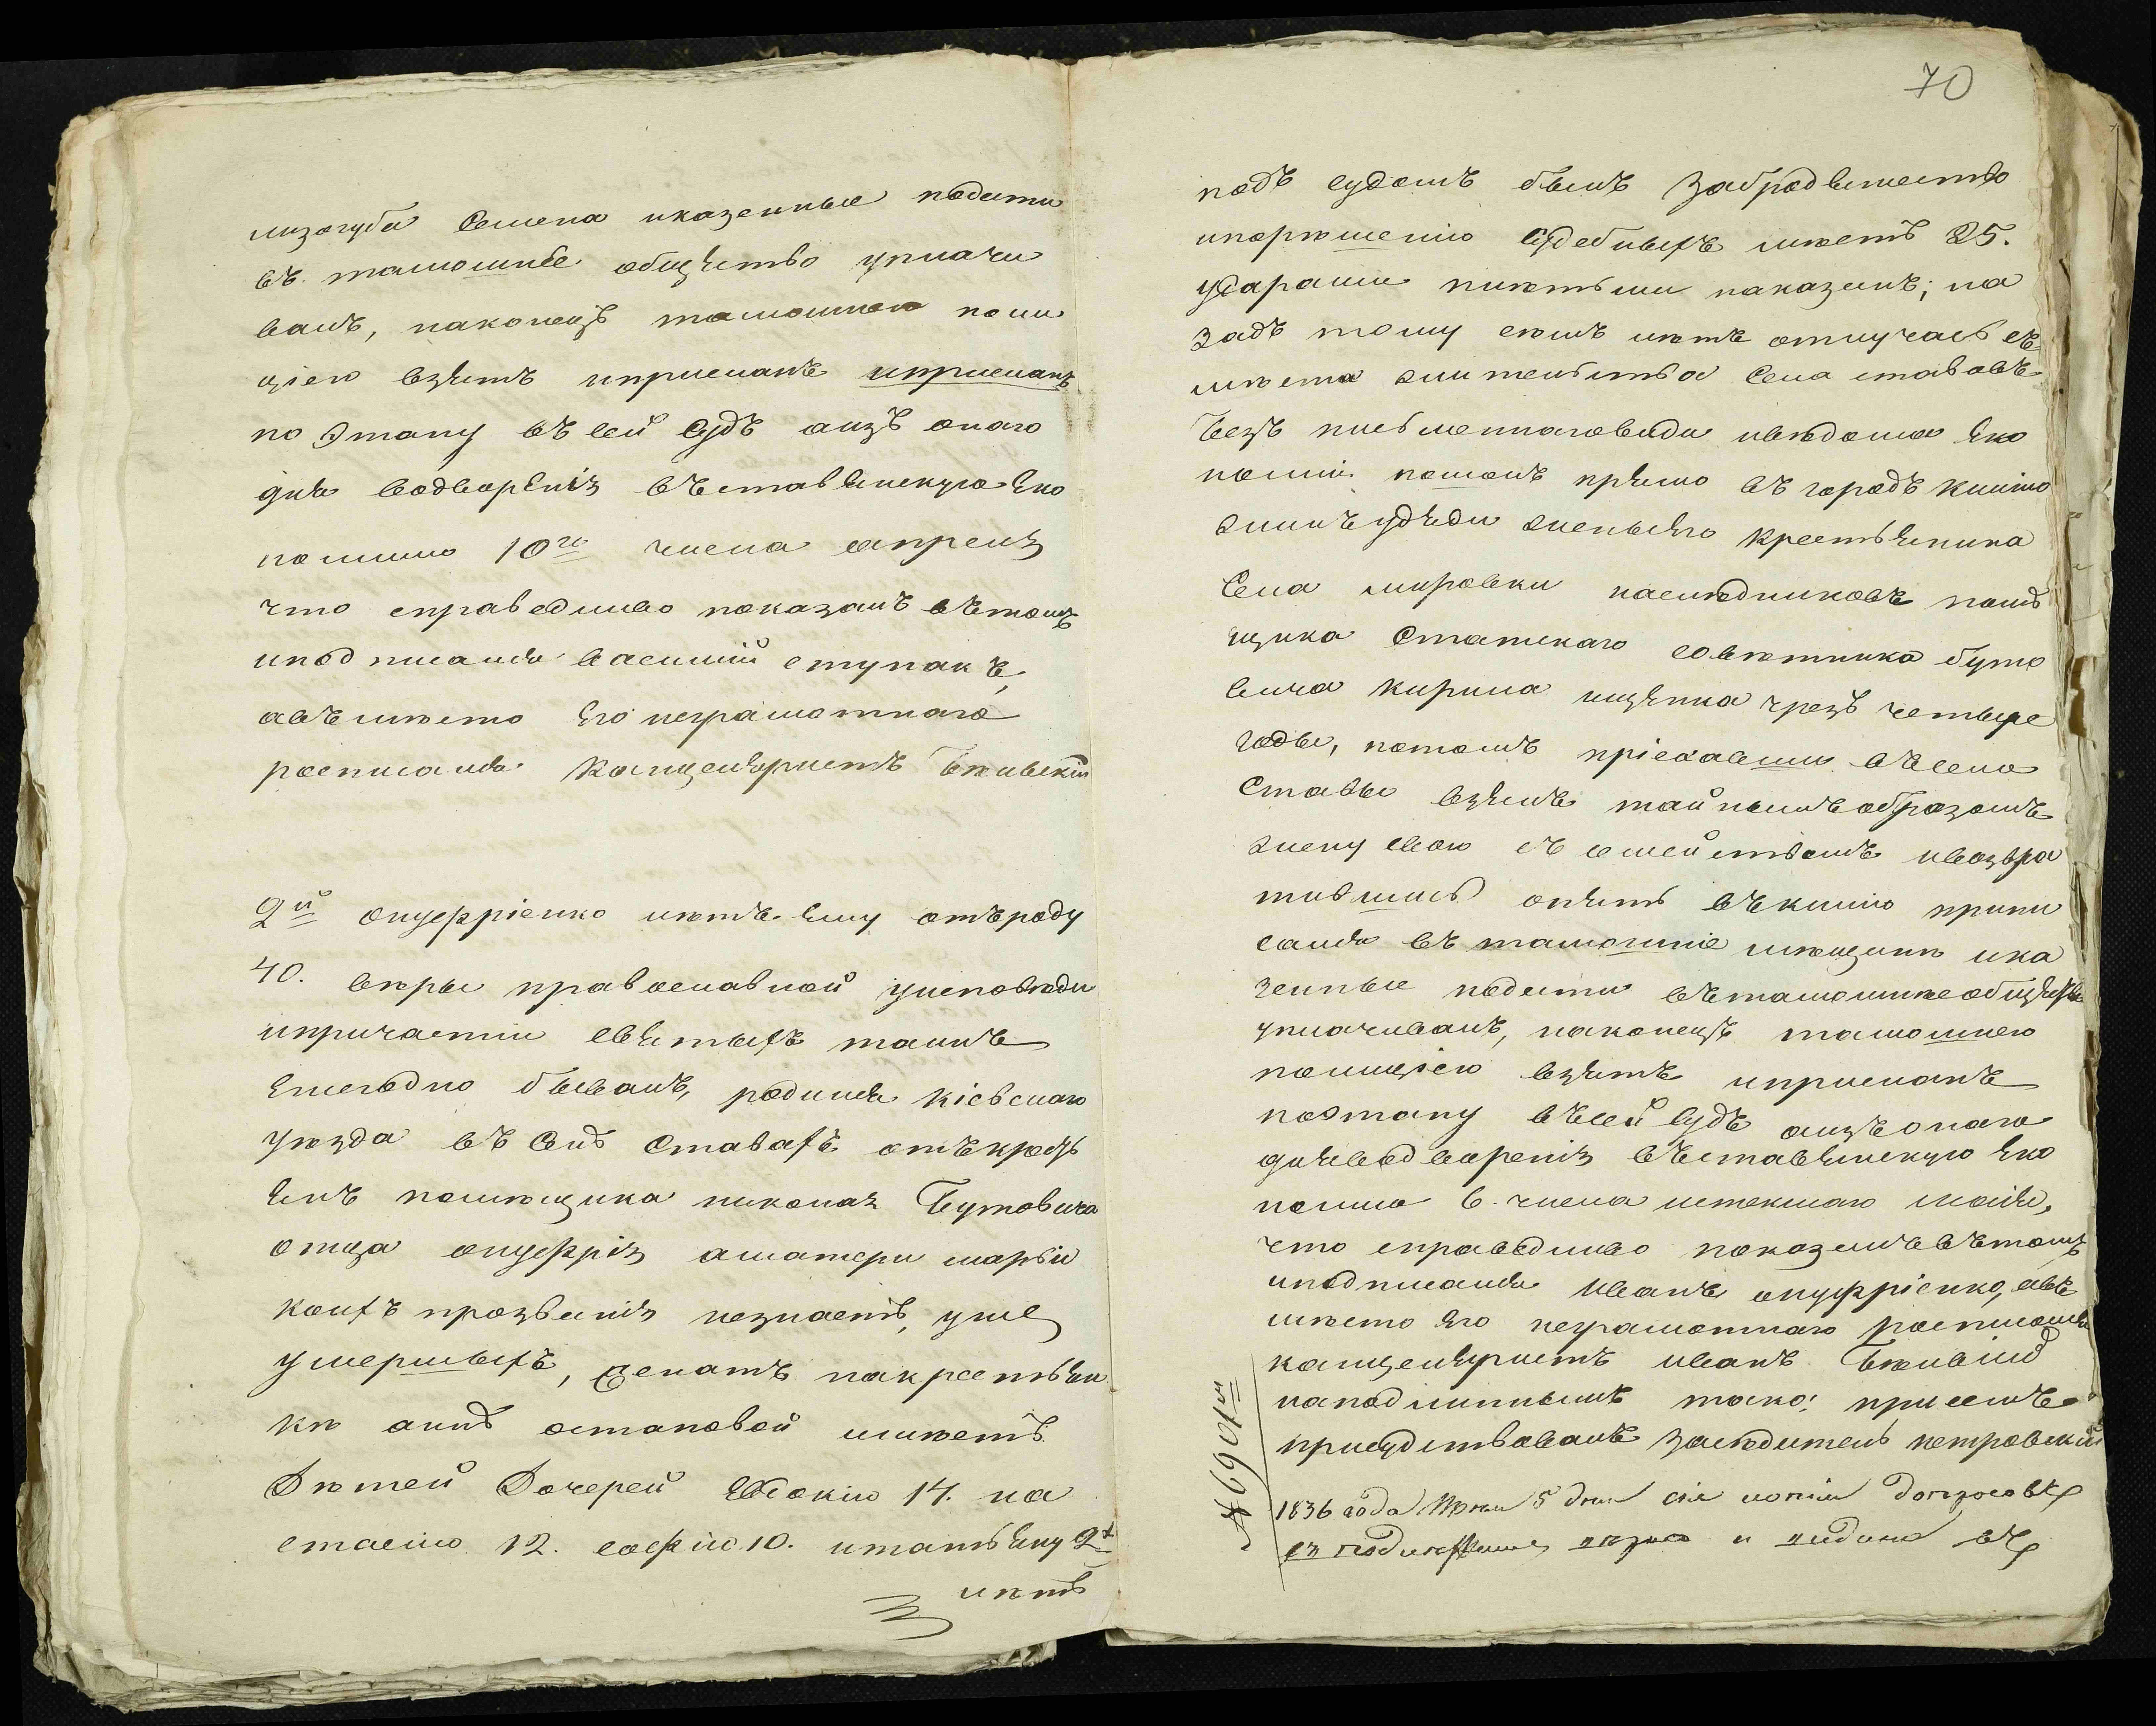 лизогуба Семена иказенные подати
въ тамошнѣе общество уплачи
валъ, наконецъ тамошнею поли
цiею взятъ иприсланъ иприсланъ
по Этапу въ сей Судъ аизъ онаго
для водворенiя въставянскую Эко
номiю 10го числа апреля
что справедливо показалъ вътомъ
иподписался василiй ступакъ,
авъ мѣсто Его неграмотнаго
росписался Канцеляристъ
2й онуфрiенко лѣтъ ему отъроду
40. вѣры православной уисповѣди
ипричастiи святыхъ таинъ
ежегодно бывалъ, родился кiевскаго
уѣзда въ Селѣ Ставахъ отъкресть
янъ помѣщика николая Бутовича
отца онуфрiя аматери марьи
коихъ прозвенiя незнаетъ, уже
умершыхъ, женатъ накрестьян
кѣ аннѣ остаповой имѣетъ
Дѣтей Дочерей Евдокiю 14. на
стасiю 12. софiю 10. итатьяну 2х
лѣтъ
70
подъ судомъ былъ забродяжество
ипорѣшенiю Судебныхъ мѣстъ 25.
ударами плѣтьми наказанъ; на
задъ тому семь лѣтъ отлучась съ
мѣста жительства Села ставовъ
безъ письменнаговида иведома Эко
номiи пошолъ прямо въ городъ
жилъ удяди женыего крестьянина
Села мировки наслѣдниковъ помѣ
щика Статскаго совѣтника буто
вича кирила ищенка чрезъ четыре
годы, потомъ прiехавши въсело
Ставы взялъ тайнымъобразомъ
жену свою съ семействомъ ивозвра
тившись опять припи
сался въ тамошнiе мѣщанѣ ика
зенные подати вътамошнѣеобщество
уплачивалъ, наконецъ тамошнею
полицiею взятъ иприсланъ
поэтапу въсей Судъ аизъонаго
дляводворенiя въставянскую Эко
номiю 6. числа истекшаго маiя,
что справедливо показалъвътомъ
иподписался Иванъ онуфрiенко, авъ
мѣсто Его неграмотнаго росписался
канцеляристъ иванъ
наподлинномъ тако: присемъ
присудствовалъ засѣдатель петровскiй
1836 года 5 дня сiи копiи допросовъ
№ 690й